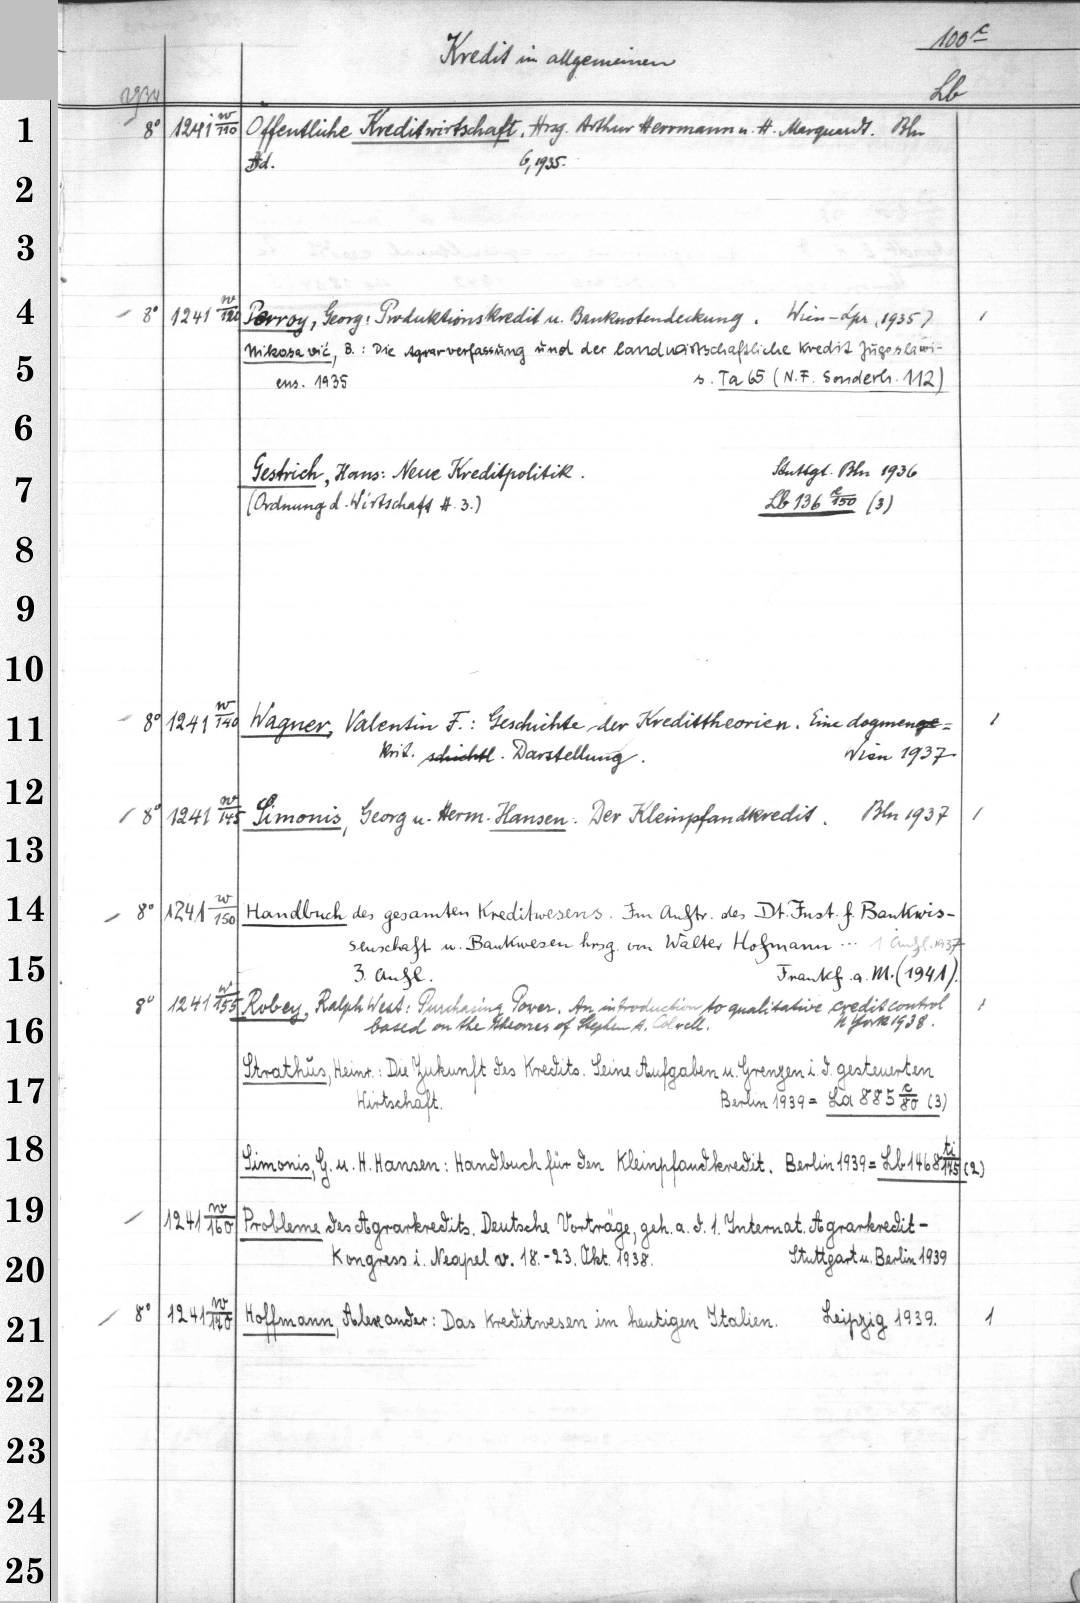 100c
Kredit im allgemeinen
Lb
1934
1 8° 1241 w/110 Öffentliche Kreditwirtschaft. Hrsg. Arthur Herrmann u. H. Marquardt. Bln
Bd. 6, 1935.
2
3
4 8° 1241 w/120 Perroy, Georg: Produktionskredit u. Banknotendeckung. Wien-Lpz. (1935) 1
Mikosavić, B.: Die Agrarverfassung und der landwirtschaftliche Kredit Jugoslawi-
5 ens. 1935 s. Ta 65 (N.F. Sonderh. 112)
6
Gestrich, Hans: Neue Kreditpolitik. Stuttgt. Bln 1936
7 (Ordnung d. Wirtschaft H. 3.) Lb 136 c/150 (3)
8
9
10
11 8° 1241 w/140 Wagner, Valentin F.: Geschichte der Kredittheorien. Eine dogmenge= 1
krit. schichtl. Darstellung. Wien 1937
12 8° 1241 w/145 Simonis, Georg u. Herm. Hansen: Der Kleinpfandkredit. Bln 1937 1
13
14 8° 1241 w/150 Handbuch des gesamten Kreditwesens. Im Auftr. des Dt. Inst. f. Bankwis-
senschaft u. Bankwesen hrsg. von Walter Hofmann ... 1 Aufl. 1937
15 3. Aufl. Frankf. a. M. (1941).
8° 1241 w/155 Robey, Ralph West: Purchasing Power. An introduction to qualitative credit control 1
16 based on the theories of Stephen A. Colwell. N York 1938.
Strathus, Heinr.: Die Zukunft des Kredits. Seine Aufgaben u. Grenzen i. d. gesteuerten
17 Wirtschaft. Berlin 1939 = La 885 c/80 (3)
18 Simonis, G. u. H. Hansen: Handbuch für den Kleinpfandkredit. Berlin 1939 = Lb 1468 ti/145 (2)
19 1241 w/160 Probleme des Agrarkredits. Deutsche Vorträge, geh. a. d. 1. Internat. Agrarkredit-
20 Kongress i. Neapel v. 18.-23. Okt. 1938. Stuttgart u. Berlin 1939
21 8° 1241 w/170 Hoffmann, Alexander: Das Kreditwesen im heutigen Italien. Leipzig 1939. 1
22
23
24
25